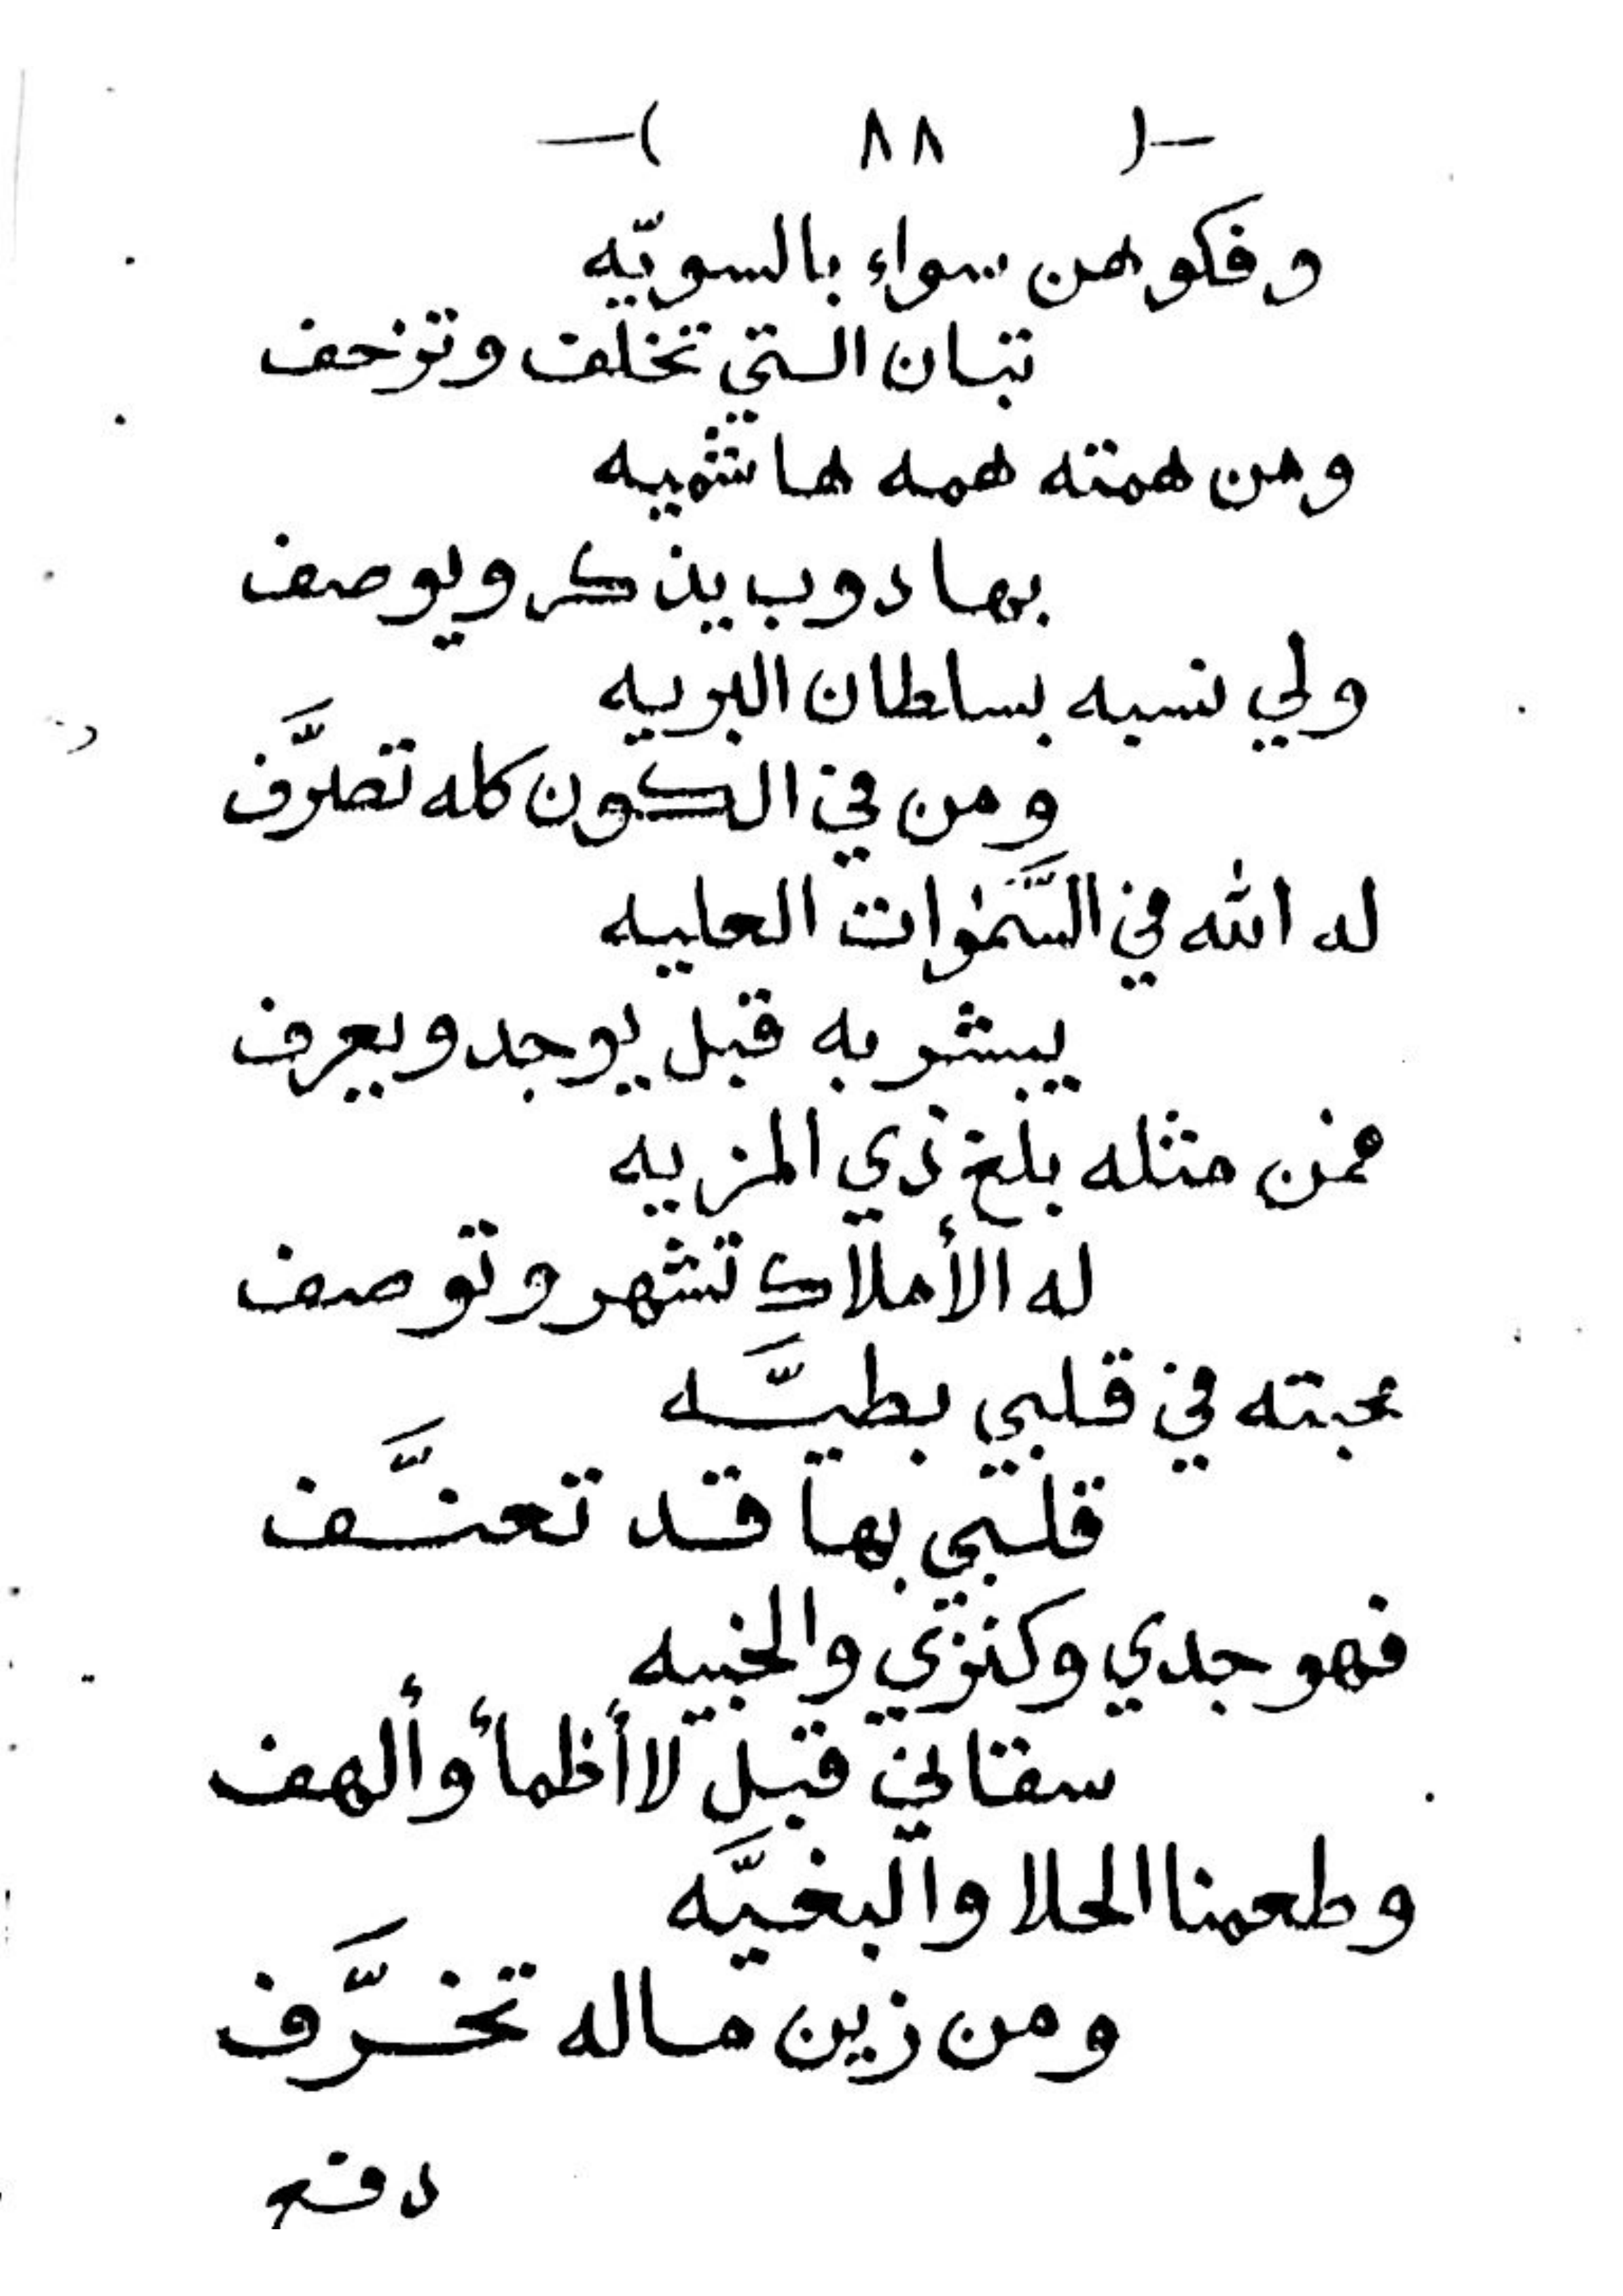 -( ٨٨ )-
وفكوهن سواء بالسويّه
تبان التي تخلف وتزحف
ومن همته همه هاشميه
بها دوب يذكر ويوصف
ولي نسبه بسلطان البريه
ومن في الكون كله تصرَّف
له الله في السَّمٰوات العليه
يبشر به قبل يوجد ويعرف
فمن مثله بلغ ذي المزيه
له الأملاك تشهر وتوصف
محبته في قلبي بطيَّه
قلبي بها قد تعنَّف
فهو جدي وكنزي والخبيه
سقتاني قبل لا أظمأ وألهف
وطعمنا الحلا والبغيَّه
ومن زين ماله تخرَّف